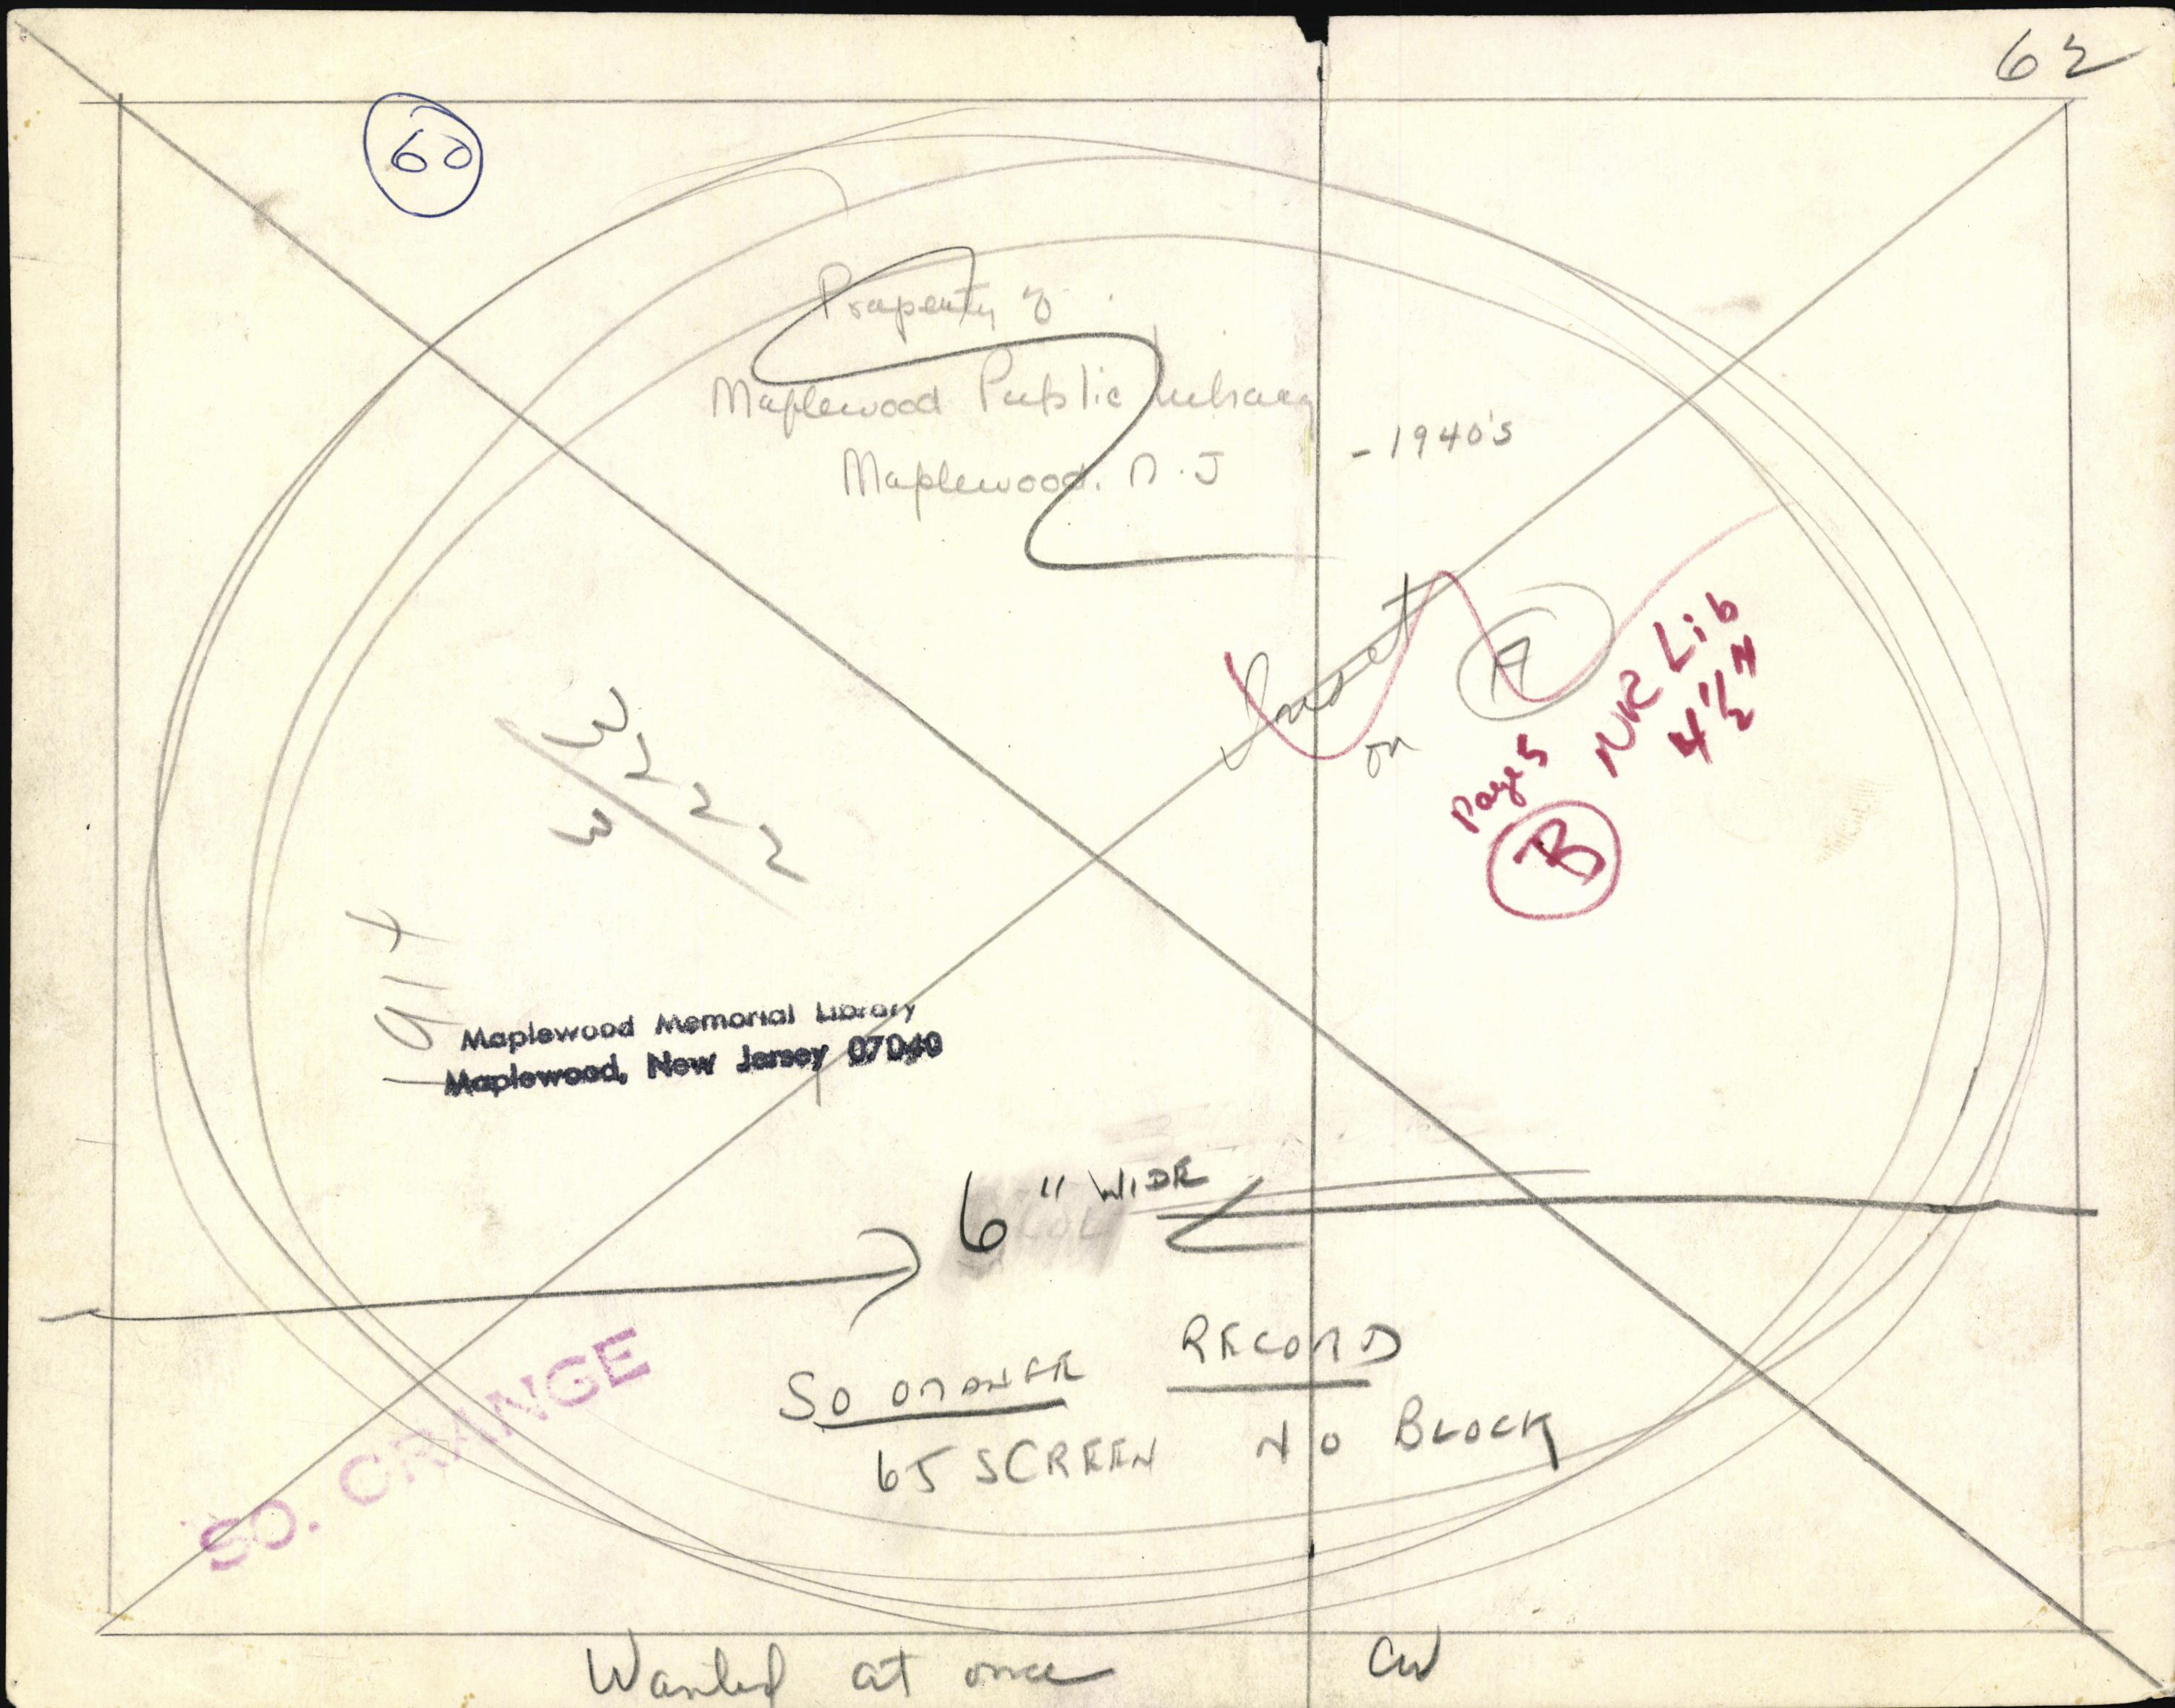 62
60
Property of
Maplewood Public Library
Maplewood. N.J
- 1940's
Inset
on
A
NR Lib
4 1/2"
Page 5
B
Maplewood Memorial Library
Maplewood, New Jersey 07040
6" WIDE
SO ORANGE RECORD
65 SCREEN NO BLOCK
SO. ORANGE
Wanted at once